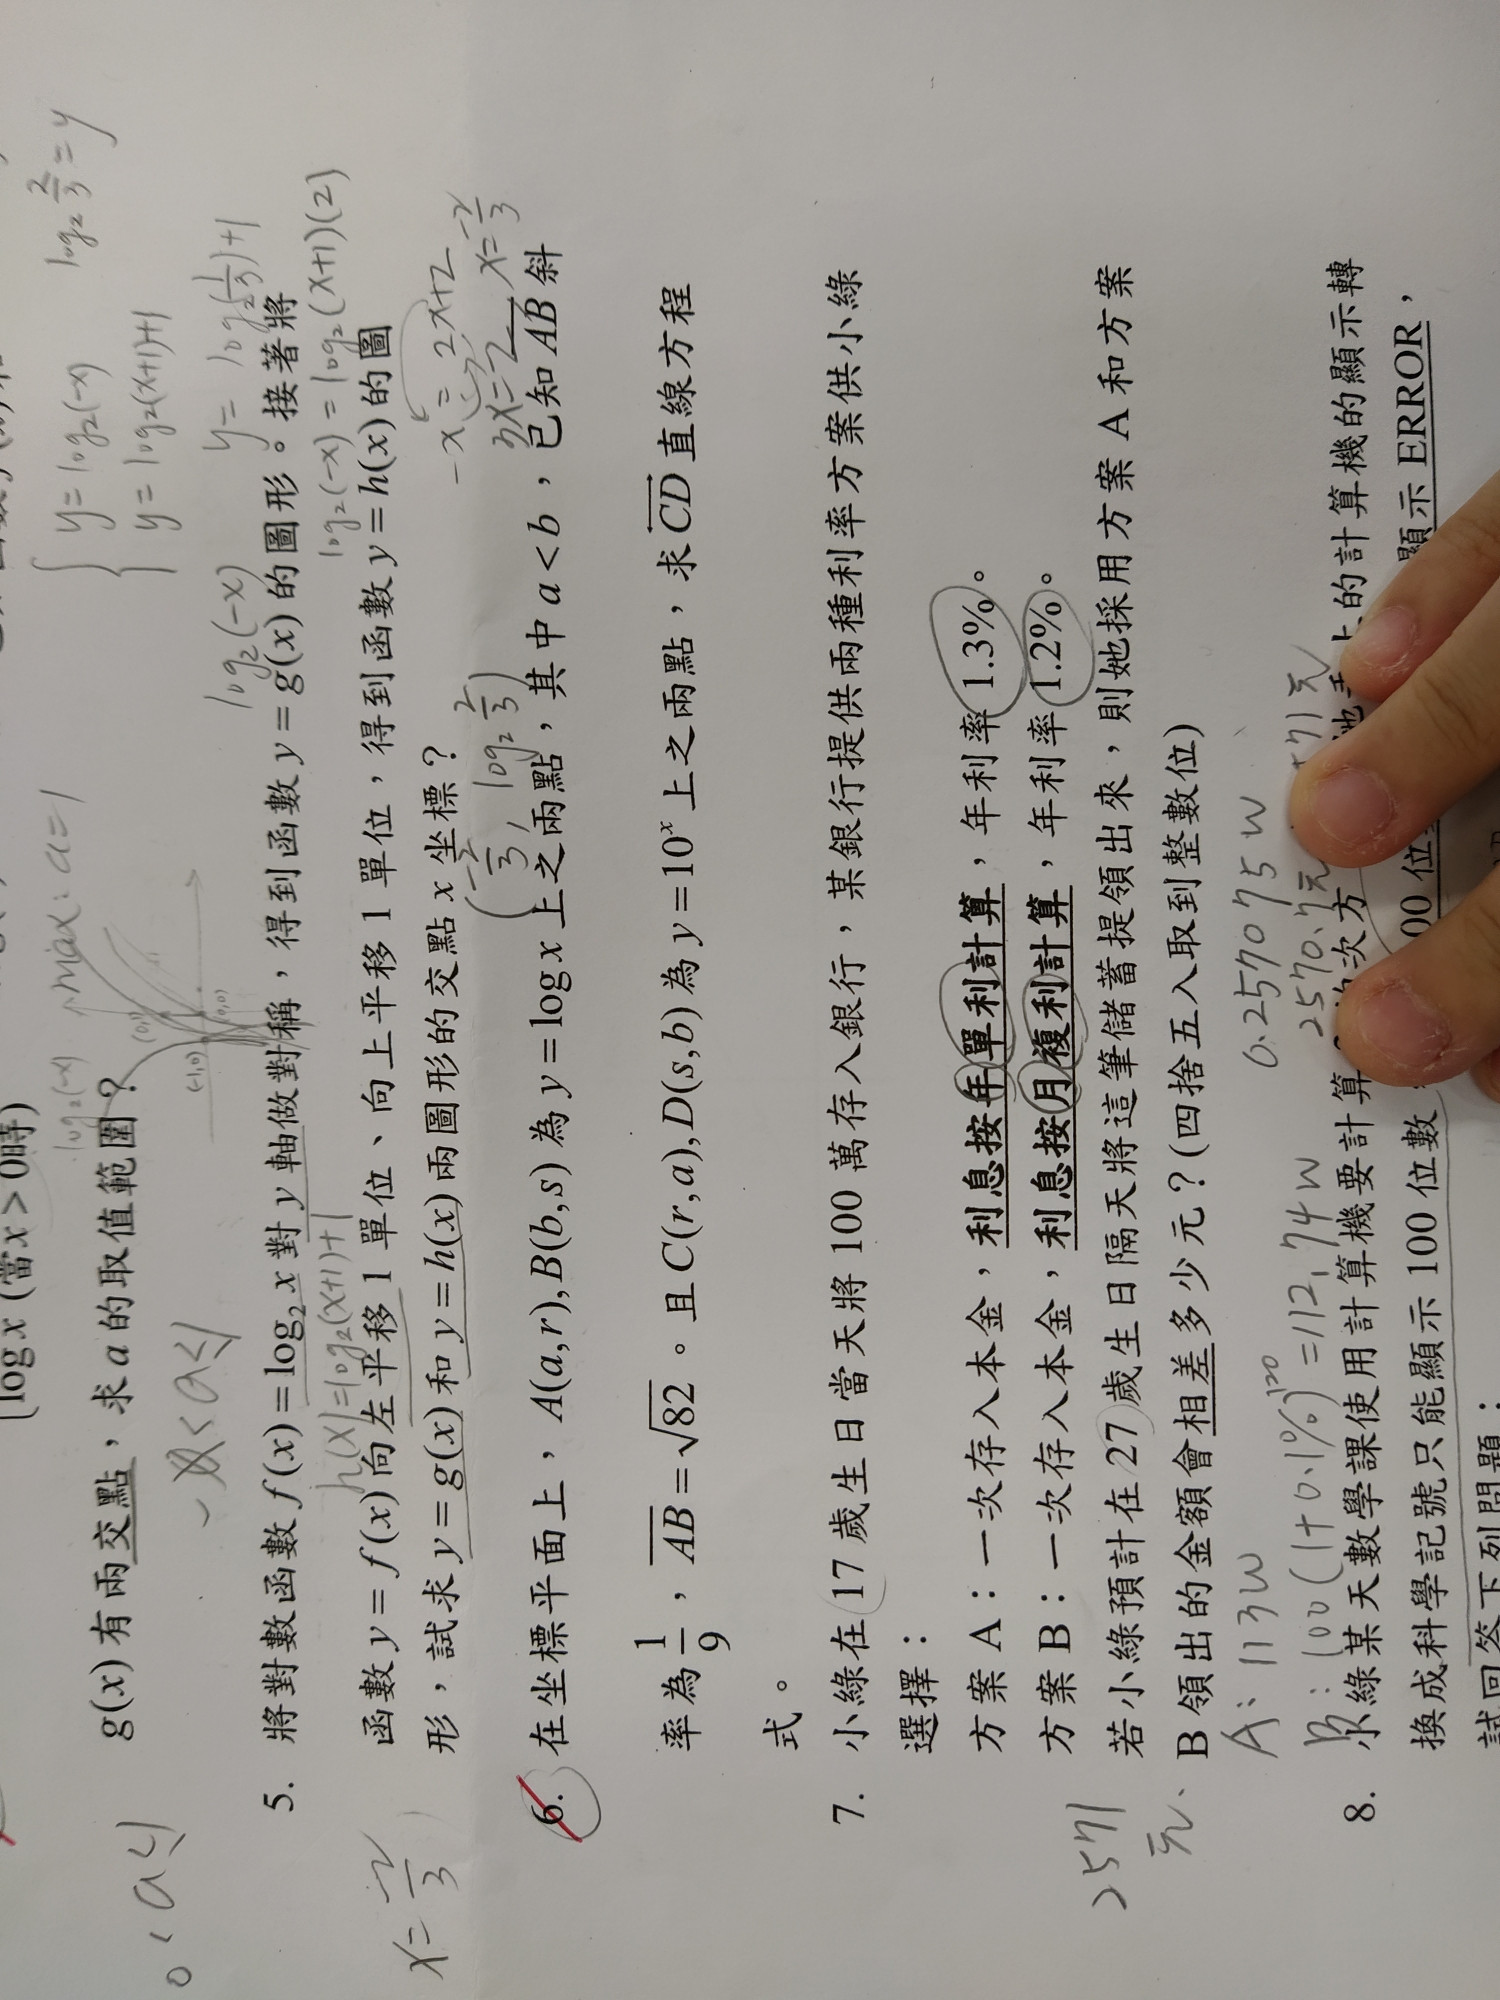 log x (當x > 0時)
g(x)有兩交點，求a的取值範圍？
0 < a < 1
max: a=1
log₂(-x)
(-1,0)
{ y = log₂(-x)
y = log₂(x+1)+1
log₂ 2/3 = y
y = log₂(1/3)+1
log₂(-x)
5. 將對數函數 f(x) = log₂ x 對 y 軸做對稱，得到函數 y = g(x) 的圖形。接著將
h(x) = log₂(x+1)+1
log₂(-x) = log₂(x+1)(2)
函數 y = f(x) 向左平移 1 單位、向上平移 1 單位，得到函數 y = h(x) 的圖
形，試求 y = g(x) 和 y = h(x) 兩圖形的交點 x 坐標？
x = -2/3
(-2/3, log₂ 2/3)
-x = 2x+2
3x = -2
x = -2/3
6. 在坐標平面上，A(a,r), B(b,s) 為 y = log x 上之兩點，其中 a < b，已知 AB 斜
率為 1/9，AB = √82。且 C(r,a), D(s,b) 為 y = 10ˣ 上之兩點，求 CD 直線方程
式。
7. 小綠在 17 歲生日當天將 100 萬存入銀行，某銀行提供兩種利率方案供小綠
選擇：
方案 A：一次存入本金，利息按年單利計算，年利率 1.3%。
方案 B：一次存入本金，利息按月複利計算，年利率 1.2%。
若小綠預計在 27 歲生日隔天將這筆儲蓄提領出來，則她採用方案 A 和方案
B 領出的金額會相差多少元？(四捨五入取到整數位)
2571元
A: 113W
0.257075W
B: 100(1+0.1%)¹²⁰ = 112.74W
2570.7元
71元
8. 小綠某天數學課使用計算機要計算 的次方 上的計算機的顯示轉
換成科學記號只能顯示 100 位數 00 位 顯示 ERROR，
試回答下列問題：